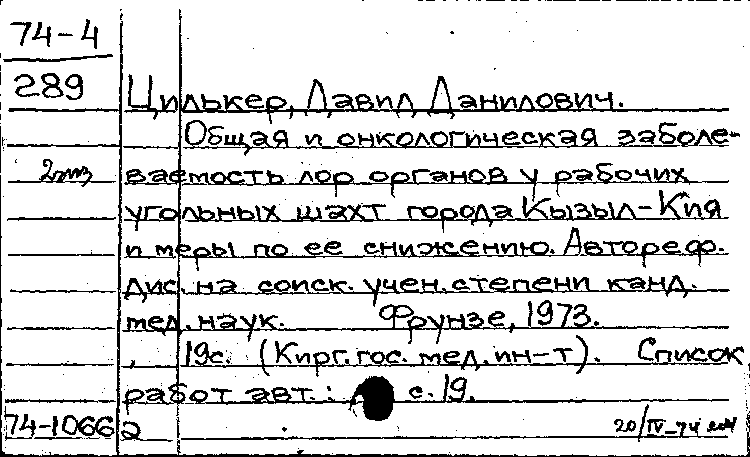 74-4
289
Цилькер, Давид Данилович.
Общая и онкологическая заболе-
2 экз
ваемость лор органов у рабочих
угольных шахт города Кызыл-Кия
и меры по ее снижению. Автореф.
дис. на соиск. учен. степени канд.
мед. наук. Фрунзе, 1973.
19с. (Кирг. гос. мед. ин-т). Список
работ авт.: с. 19.
74-10662
20/IV-74